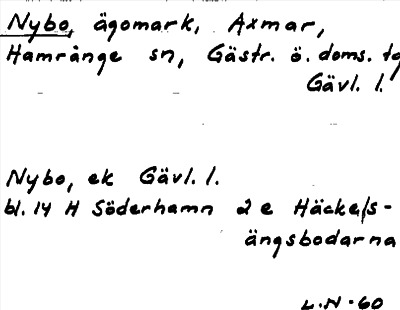 Nybo, ägomark, Axmar,
Hamrånge sn, Gästr. ö. doms. tg
Gävl. l.
Nybo, ek Gävl. l.
bl. 14 H Söderhamn 2 e Häckels-
ängsbodarna
L.N-60